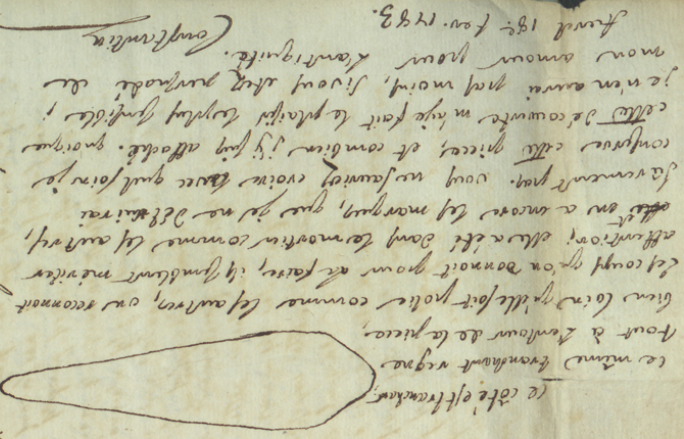 ce côté est tranchant,
ce même tranchant regne
tout à l'entour de la piece,
bien loin qu'elle soit polie comme les autres, on reconnoit
les coups qu'on donnoit pour la faire, ils semblent mériter
attention; elle a été dans le mortier comme les autres,
en a encore les marques, que je ne détruirai
surement pas. vous ne sauriez croire avec quel soin je
conserve cette piece, et combien j'y suis attaché. quoique
cette découverte m'aye fait le plaisir le plus sensible;
je n'en aurai pas moins, si vous etes persuadé de
mon amour pour L'antiquité.
18e fev. 1783.